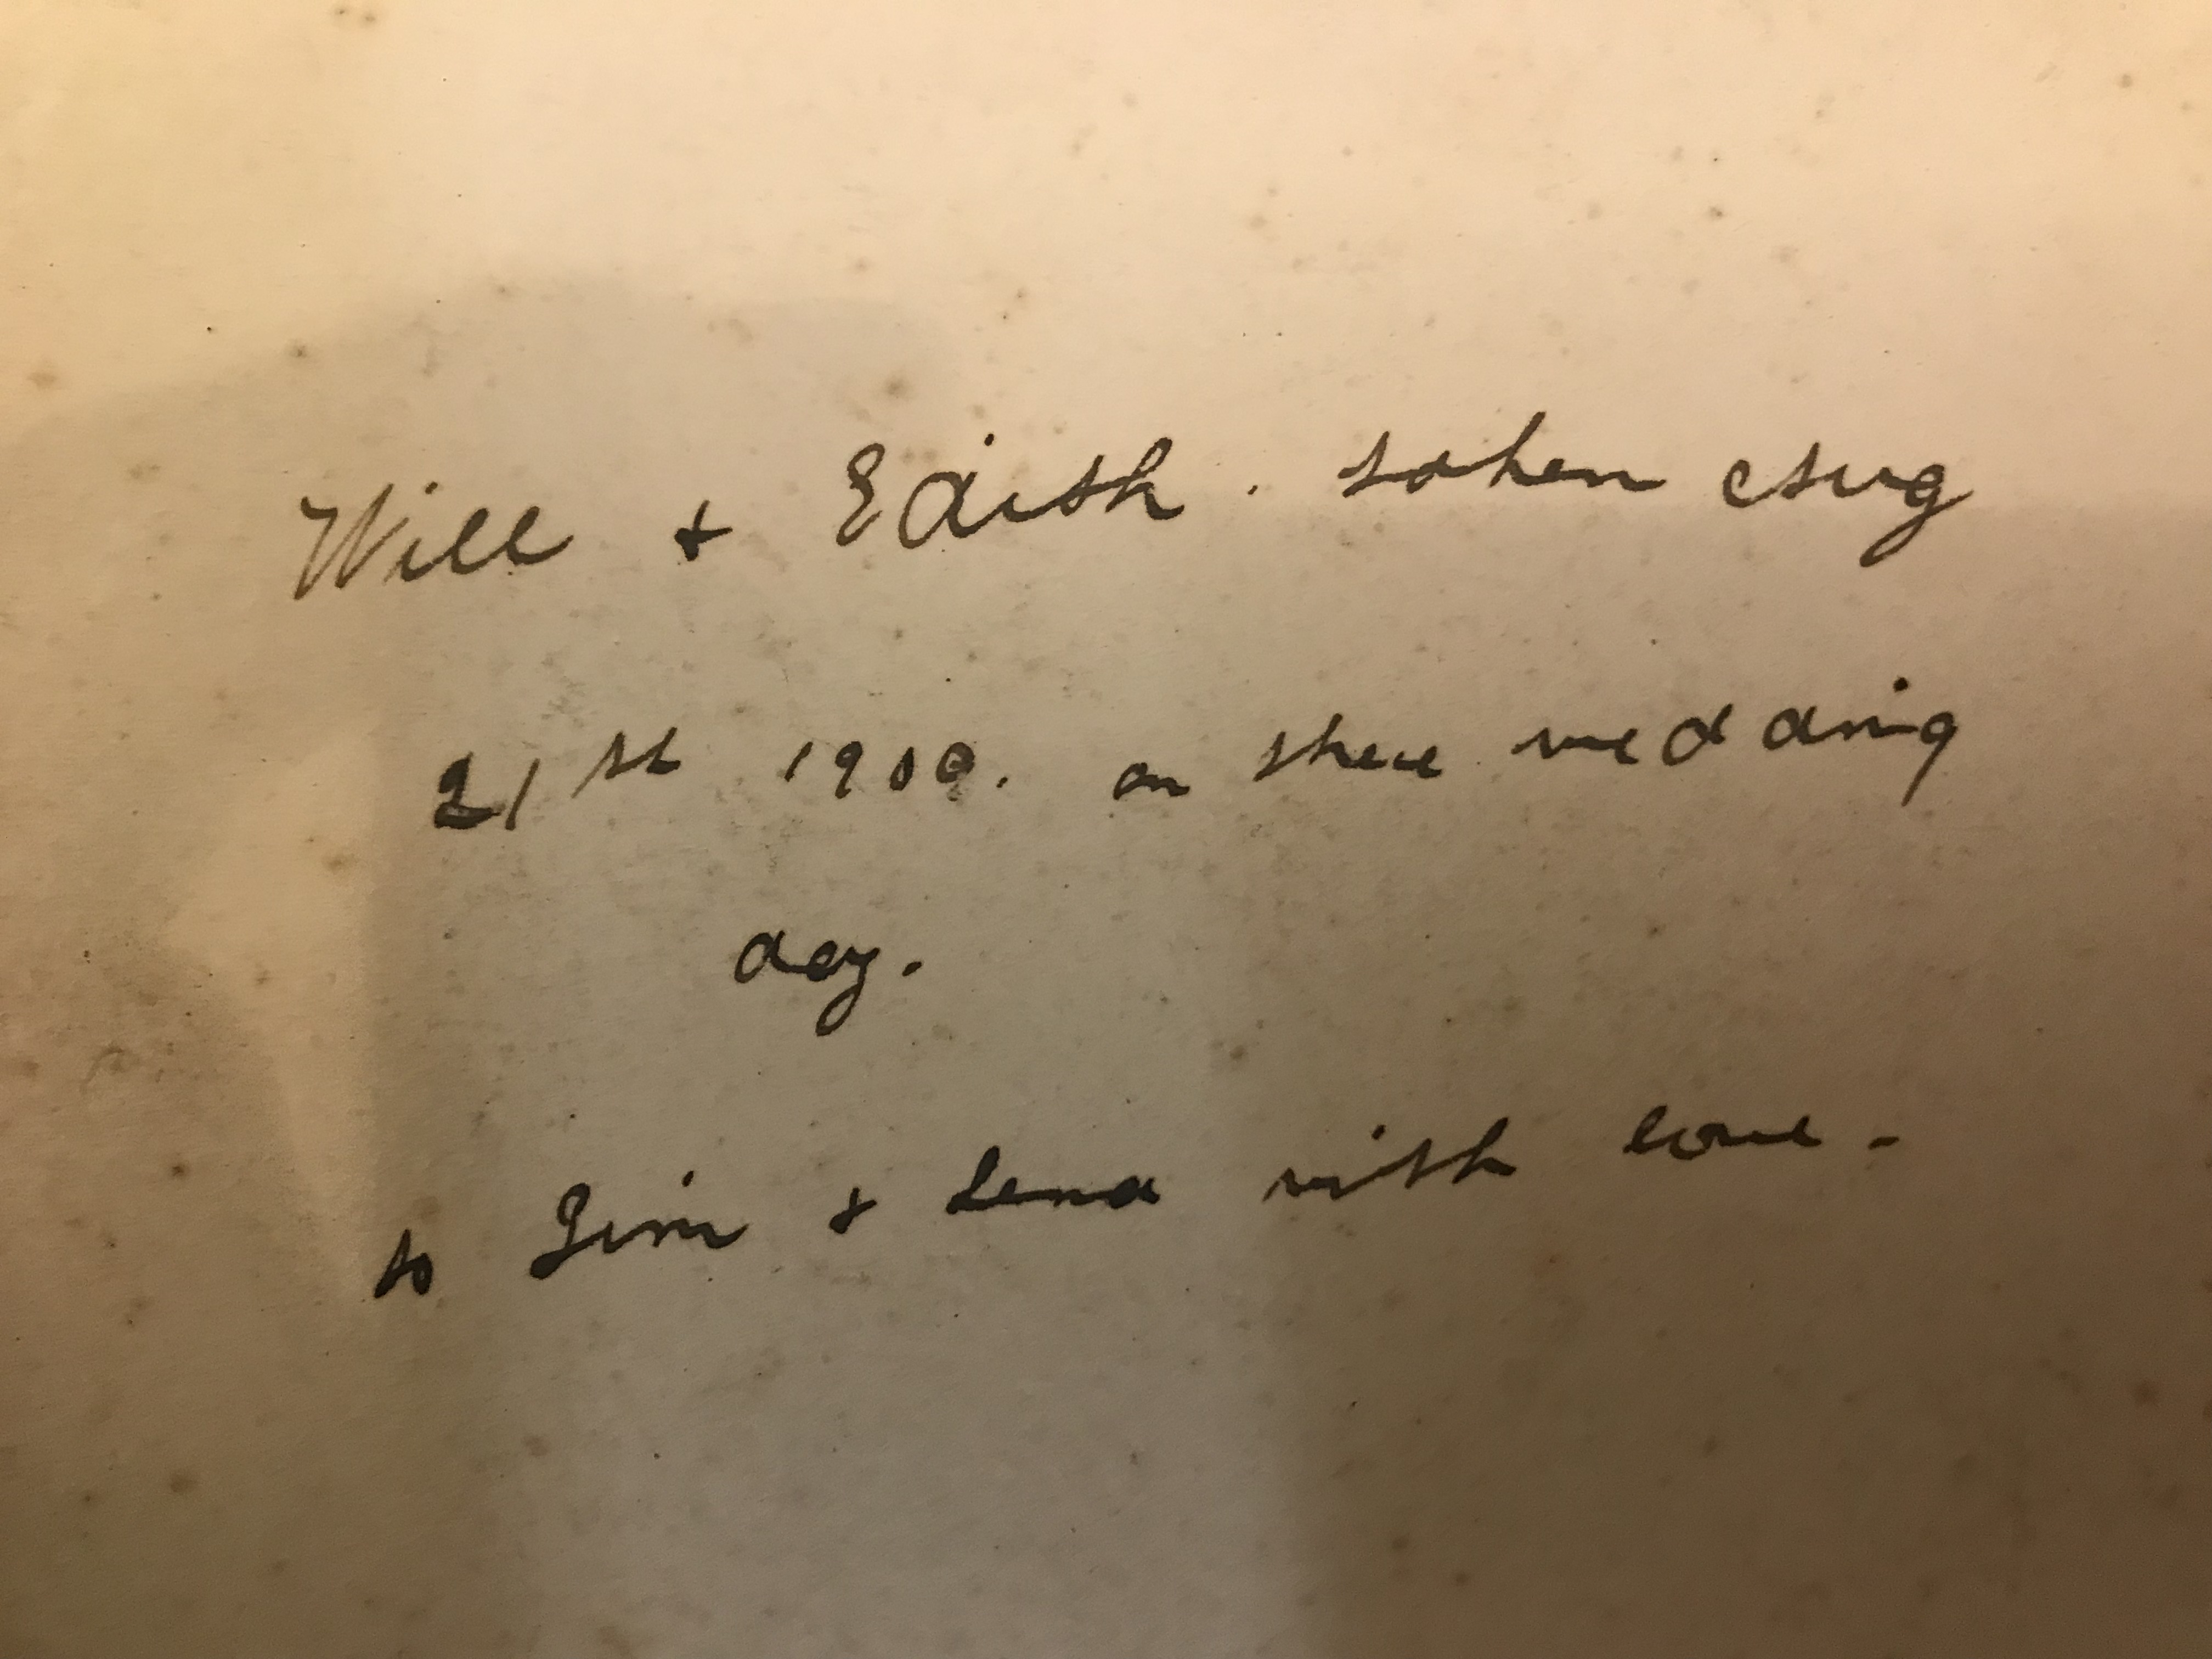 Will & Edith. taken Aug
21st 1909. on there wedding
day.
to Jim & Lena with love.